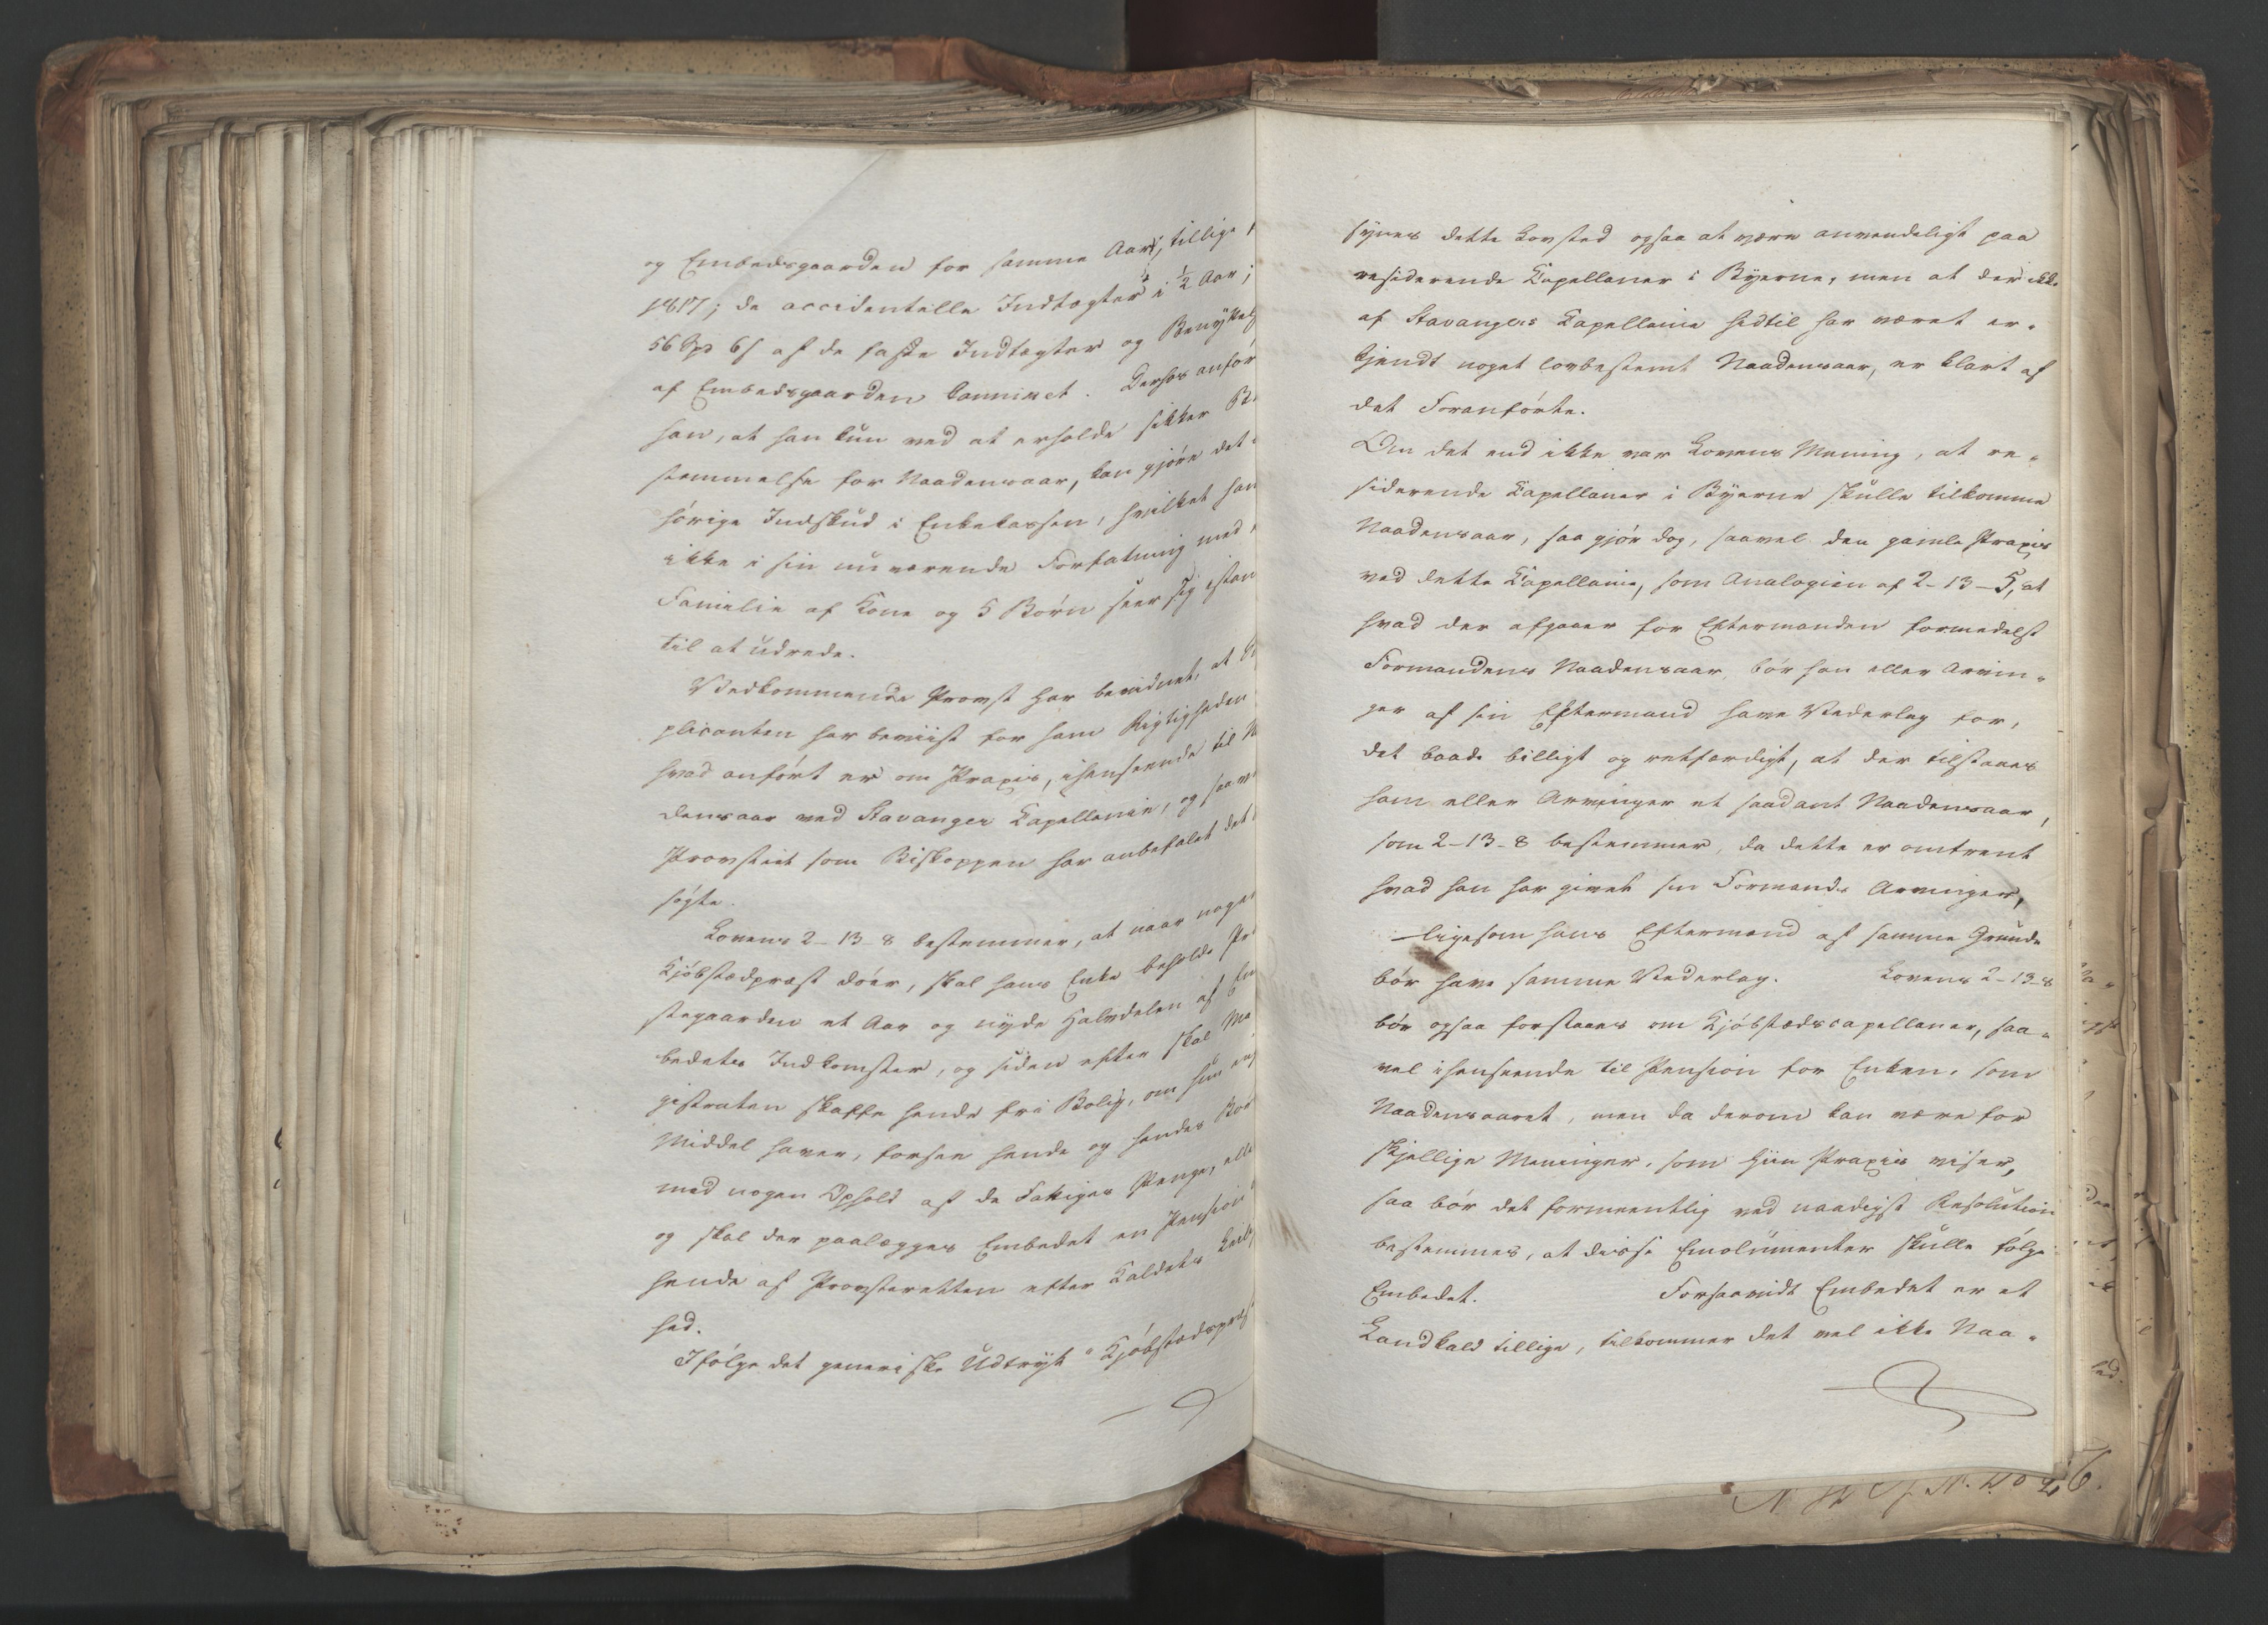 og Embedsgaarden for samme Aar, tillige
1817; de accidentelle Indtægter i ½ Aar;
56 Spd 6 s af de faste Indtægter og Benÿttels
af Embedsgaarden. Derhos anfør
han, at han kun ved at erholde sikker Be
stemmelse for Naadensaar, kan gjöre det
hörige Indskud i Enkekassen, hvilket han
ikke i sin nuværende Forfatning med
Familie af Kone og 5 Börn seer sig istan
til at udrede.
Vedkommende Provst har bevidnet, at Su
plicanten har beviist for ham Rigtigheden
hvad anfört er om Praxis, ihenseende til Na
densaar ved Stavanger Kapellanie, og saave
Provstiet som Biskoppen har anbefalet det
søgte.
Lovens 2-13-8 bestemmer, at naar noge
Kjöbstedpræst döer, skal hans Enke beholde Pr
stegaarden et Aar og nÿde Halvdelen af Em
bedets Indkomster, og siden efter skal Ma
gistraten skaffe hende fri Bolig, om hun ei
Middel haver, forsee hende og hendes Bör
med nogen Ophold af de Fattiges Penge, elle
og skal der paalægges Embedet en Pension
hende af Provsteretten efter Kaldets Leilig
hed.
Ifölge det generiske Udtrÿk "Kjöbstedspræst
sÿnes dette Lovsted ogsaa at være anvendeligt paa
residerende Kapellaner i Bÿerne, men at der ikke
af Stavangers Kapellanie hidtil har været er-
kjendt noget lovbestemt Naadensaar, er klart af
det Foranförte.
Om det end ikke var Lovens Mening, at re-
siderende Kapellaner i Bÿerne skulle tilkomme
Naadensaar, saa gjör dog, saavel den gamle Praxis
ved dette Kapellanie, som Analogien af 2-13-5, at
hvad der afgaaer for Eftermanden formedelst
Formandens Naadensaar, bör han eller Arvin-
ger af sin Eftermand have Vederlag for,
det baade billigt og retfærdigt, at der tilstaaes
ham eller Arvinger et saadant Naadensaar,
som 2-13-8 bestemmer, da dette er omtrent
hvad han har givet sin Formands Arvinger,
- ligesom hans Eftermand af samme Grunde
bör have samme Vederlag. Lovens 2-13-8
bör ogsaa forstaaes om Kjöbstedscapellaner, saa-
vel ihenseende til Pension for Enken, som
Naadensaaret, men da derom kan være for
skjellige Meninger, som hiin Praxis viser,
saa bör det formeentlig ved naadigst Resolution
bestemmes, at disse Emolumenter skulle fölge
Embedet. Forsaavidt Embedet er et
Landkald tillige, tilkommer det vel ikke Naa-